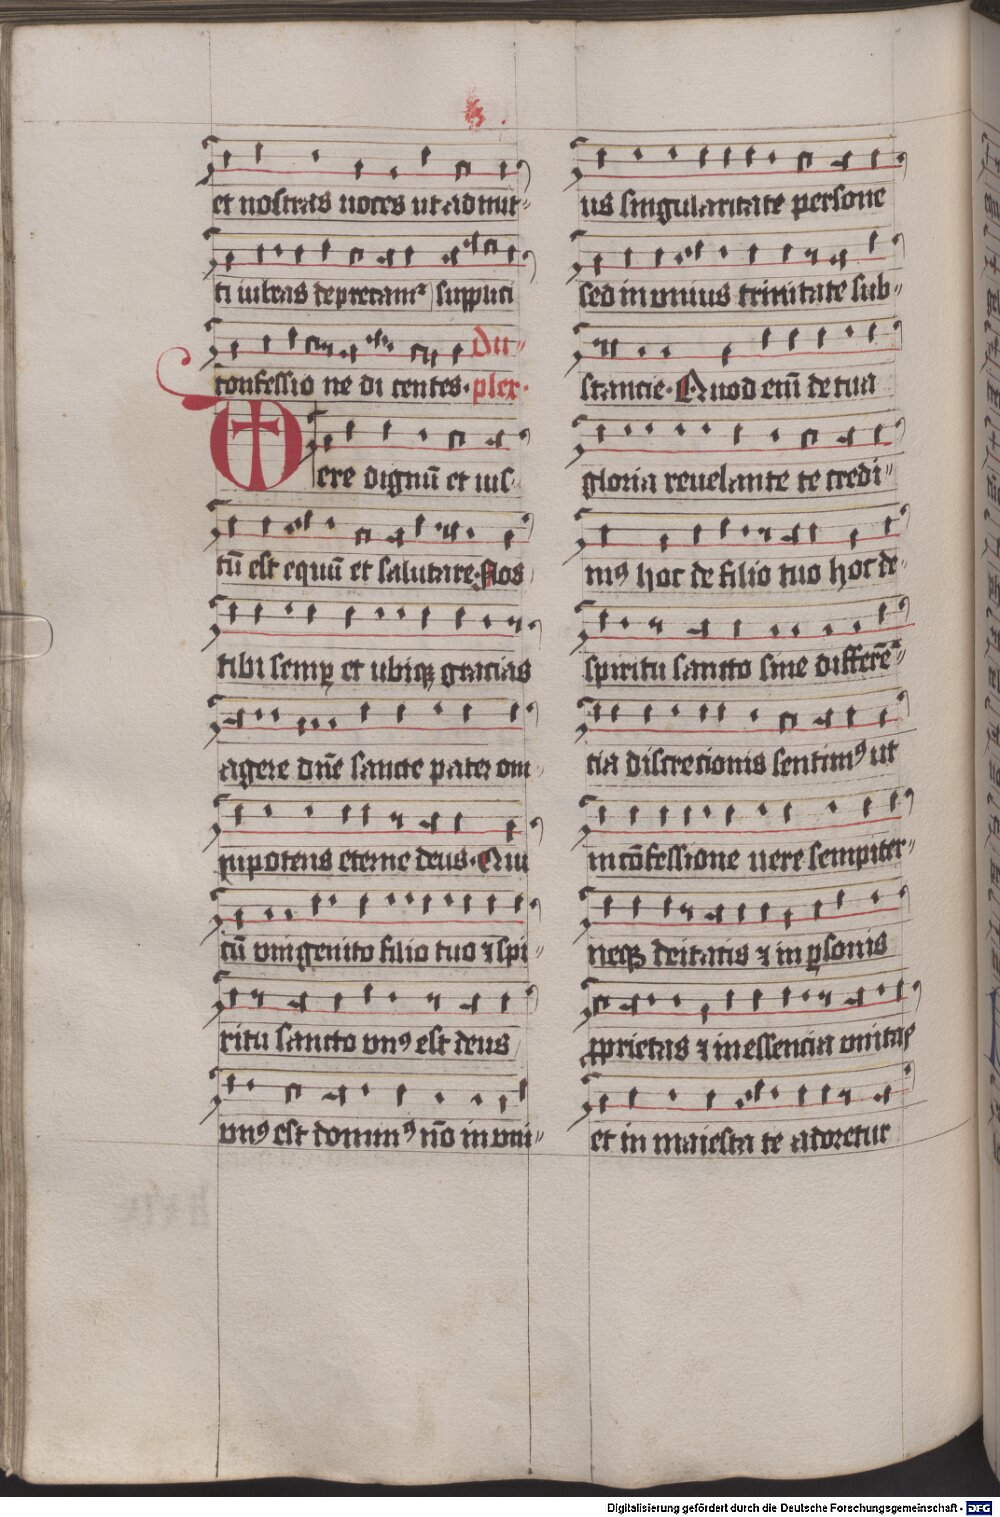 et nostras uoces ut admit„
ti iubeas deprecamr suppuci
confessio ne di centes·
Du„
plex·
Vere dignū et ius„
tū est equū et salutare·Nos
tibi semꝑ et ubiqꝫ gracias
agere dn̄e sancte pater om„
nipotens eterne deus·Qui
cū vnigenito filio tuo ⁊ spi„
ritu sancto vnꝰ est deus
vnꝰ est dominꝰ nō in vni„
us singularitate persone
sed in vnius trinitate sub„
stancie·Quod enī de tua
gloria reuelante te credi„
mꝰ hoc de filio tuo hoc de„
spiritu sancto sine differē„
tia discretionis sentimꝰ ut
in cōfessione uere sempiter„
neqꝫ deitatis ⁊ in ꝑsonis
ꝓprietas ⁊ in essencia vnitas
et in maiesta te adoretur
Digitalisierung gefördert durch die Deutsche Forschungsgemeinschaft - DFG